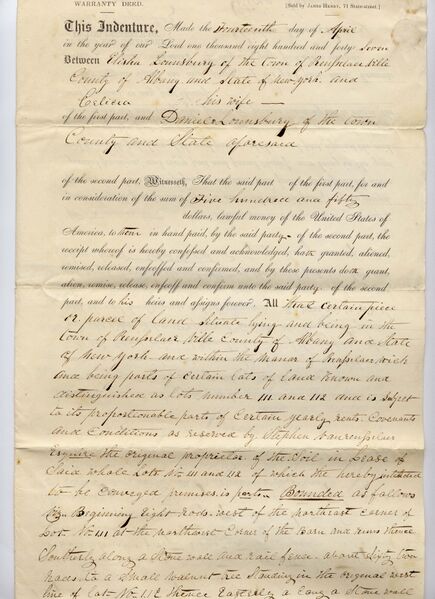 WARRANTY DEED.
[Sold by James Henry, 71 State-street.]
This Indenture, Made the Fourteenth day of April
in the year of our Lord one thousand eight hundred and forty Seven
Between Elisha Lounsbury of the Town of Rensselaerville
County of Albany and State of New York and
his wife
of the first part, and Daniel Lounsbury of the Town
County and State aforesaid
of the second part, Witnesseth, That the said part of the first part, for and
in consideration of the sum of Five hundred and fifty
dollars, lawful money of the United States of
America, to them in hand paid, by the said party of the second part, the
receipt whereof is hereby confessed and acknowledged, hath granted, aliened,
remised, released, enfeoffed and confirmed, and by these presents doth grant,
alien, remise, release, enfeoff and confirm unto the said party of the second
part, and to his heirs and assigns forever, All that certain piece
or parcel of land situate lying and being in the
Town of Rensselaer Ville County of Albany and State
of New York and within the Manor of Rensselaerwick
and being parts of certain Lots of land known and
distinguished as lots number 111 and 112 and is subject
to its proportionable parts of certain yearly rents Covenants
and Conditions as reserved by Stephen Vanrensselaer
Esquire the original proprietor of the Soil in Lease of
Said whole Lots No. 111 and 112 of which the hereby intended
to be conveyed premises is part Bounded as follows
Beginning Eight Rods west of the northeast corner of
Lot No 111 at the northwest Corner of the Barn and runs thence
Southerly along a Stone wall and rail fence about Sixty two
rods to a Small walnut tree Standing in the original west
line of Lot No. 112 thence Easterly along a Stone wall